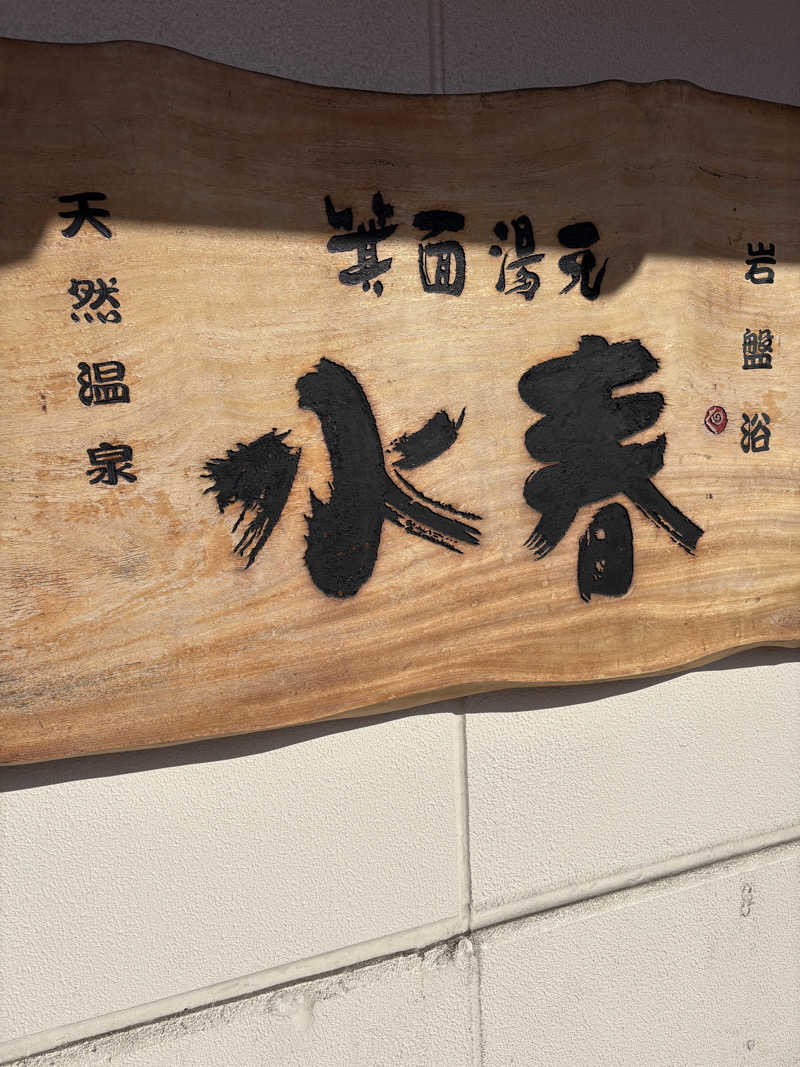 箕面湯元
水春
岩盤浴
天然温泉